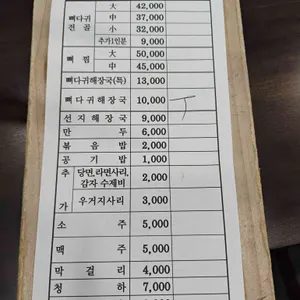 大 42,000
뼈다귀 中 37,000
전골 小 32,000
추가1인분 9,000
뼈찜 大 50,000
中 45,000
뼈다귀해장국(특) 13,000
뼈다귀해장국 10,000
선지해장국 9,000
만두 6,000
볶음밥 2,000
공기밥 1,000
추가 당면,라면사리, 감자 수제비 2,000
우거지사리 3,000
소주 5,000
맥주 5,000
막걸리 4,000
청하 7,000